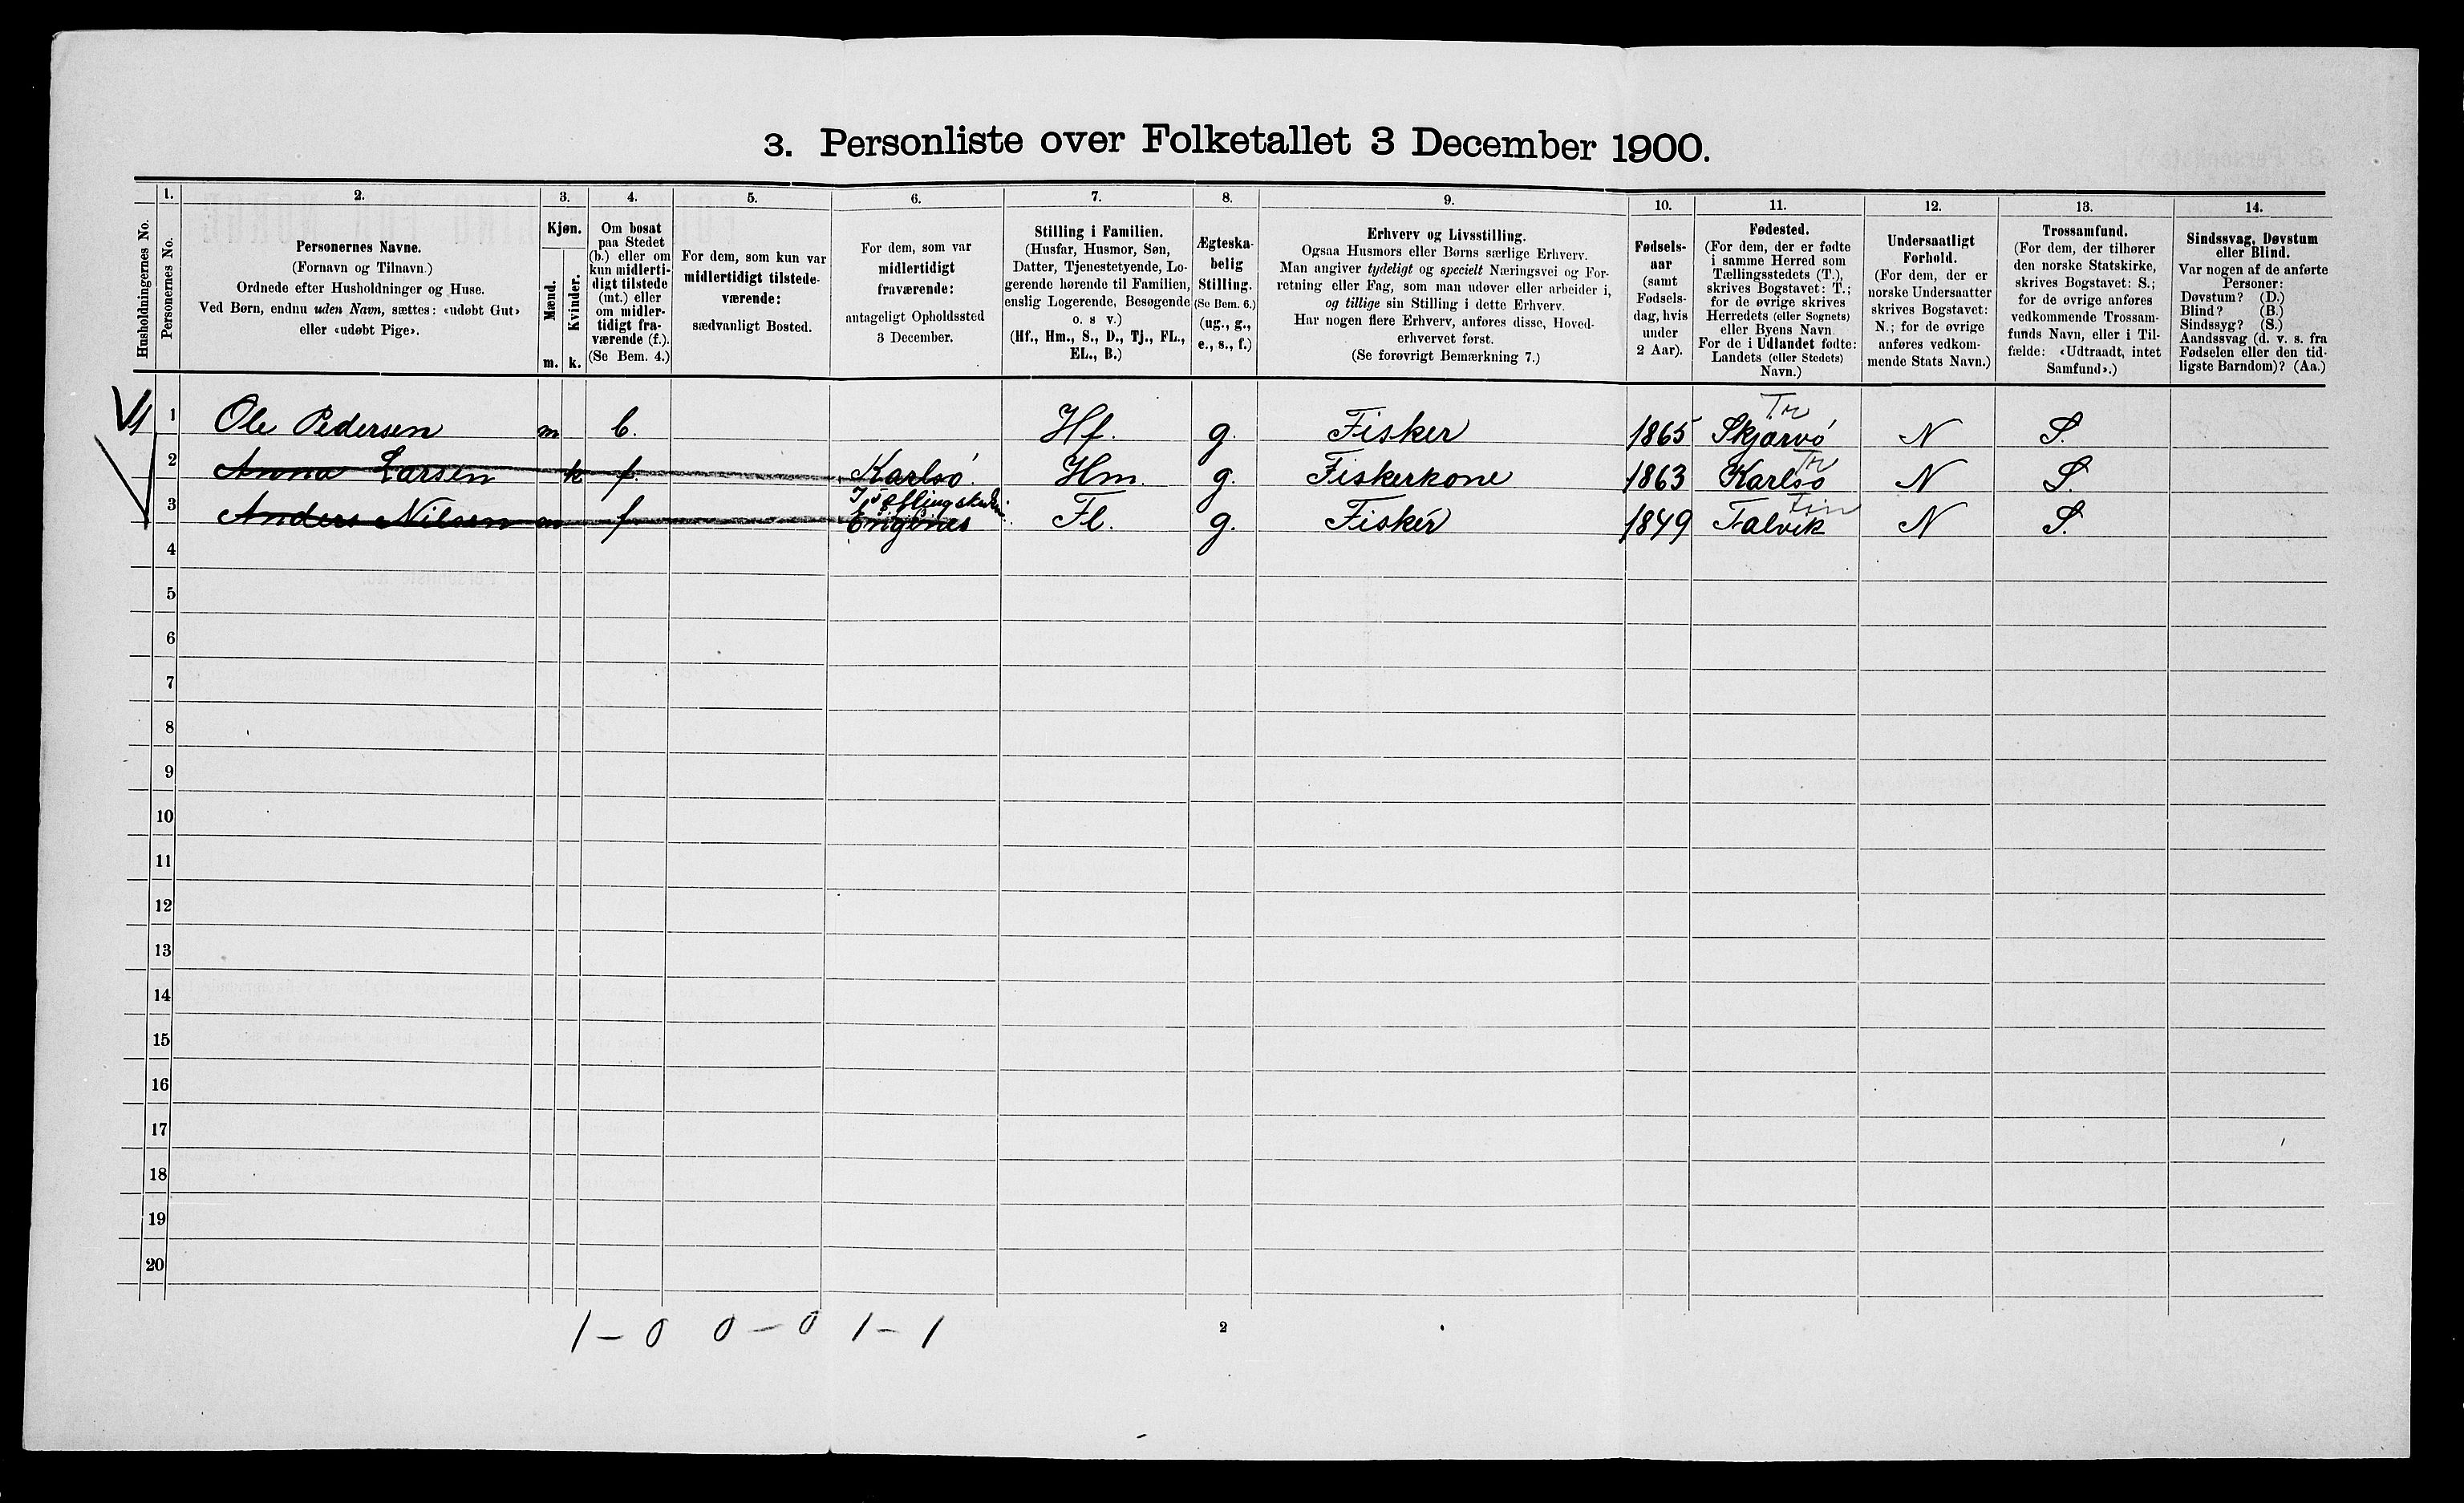 3. Personliste over Folketallet 3 December 1900.
1. 2. 3. 4. 5. 6. 7. 8. 9. 10. 11. 12. 13. 14.
Husholdningernes No.
Personernes No.
Personernes Navne.
(Fornavn og Tilnavn.)
Ordnede efter Husholdninger og Huse.
Ved Børn, endnu uden Navn, sættes: «udøbt Gut»
eller «udøbt Pige».
Kjøn.
Mænd.
Kvinder.
m. k.
Om bosat
paa Stedet
(b.) eller om
kun midlerti-
digt tilstede
(mt.) eller
om midler-
tidigt fra-
værende (f.).
(Se Bem. 4.)
For dem, som kun var
midlertidigt tilstede-
værende:
sædvanligt Bosted.
For dem, som var
midlertidigt
fraværende:
antageligt Opholdssted
3 December.
Stilling i Familien.
(Husfar, Husmor, Søn,
Datter, Tjenestetyende, Lo-
gerende hørende til Familien,
enslig Logerende, Besøgende
o. s v.)
(Hf., Hm., S., D., Tj., FL.,
EL., B.)
Ægteska-
belig
Stilling.
(Se Bem. 6.)
(ug., g.,
e., s., f.)
Erhverv og Livsstilling.
Ogsaa Husmors eller Børns særlige Erhverv.
Man angiver tydeligt og specielt Næringsvei og For-
retning eller Fag, som man udøver eller arbeider i,
og tillige sin Stilling i dette Erhverv.
Har nogen flere Erhverv, anføres disse, Hoved-
erhvervet først.
(Se forøvrigt Bemærkning 7.)
Fødsels-
aar
(samt
Fødsels-
dag, hvis
under
2 Aar).
Fødested.
(For dem, der er fødte
i samme Herred som
Tællingsstedets (T.),
skrives Bogstavet: T.;
for de øvrige skrives
Herredets (eller Sognets)
eller Byens Navn.
For de i Udlandet fødte:
Landets (eller Stedets)
Navn.)
Undersaatligt
Forhold.
(For dem, der er
norske Undersaatter
skrives Bogstavet:
N.; for de øvrige
anføres vedkom-
mende Stats Navn.)
Trossamfund.
(For dem, der tilhører
den norske Statskirke,
skrives Bogstavet: S.;
for de øvrige anføres
vedkommende Trossam-
funds Navn, eller i Til-
fælde: «Udtraadt, intet
Samfund».)
Sindssvag, Døvstum
eller Blind.
Var nogen af de anførte
Personer:
Døvstum? (D.)
Blind? (B.)
Sindssyg? (S.)
Aandssvag (d. v. s. fra
Fødselen eller den tid-
ligste Barndom)? (Aa.)
Tr
1 1 Ole Pedersen m b. Hf. g. Fisker 1865 Skjærvö N S.
Tr
2 Anna Larsen k f. Karlsö. Hm. g. Fiskerkone 1863 Karlsö N S.
Fin
3 Anders Nilsen m f Engenes Fl. g. Fisker 1849 Talvik N S.
4
5
6
7
8
9
10
11
12
13
14
15
16
17
18
19
20
1 – 0 0 – 0 1 – 1
2